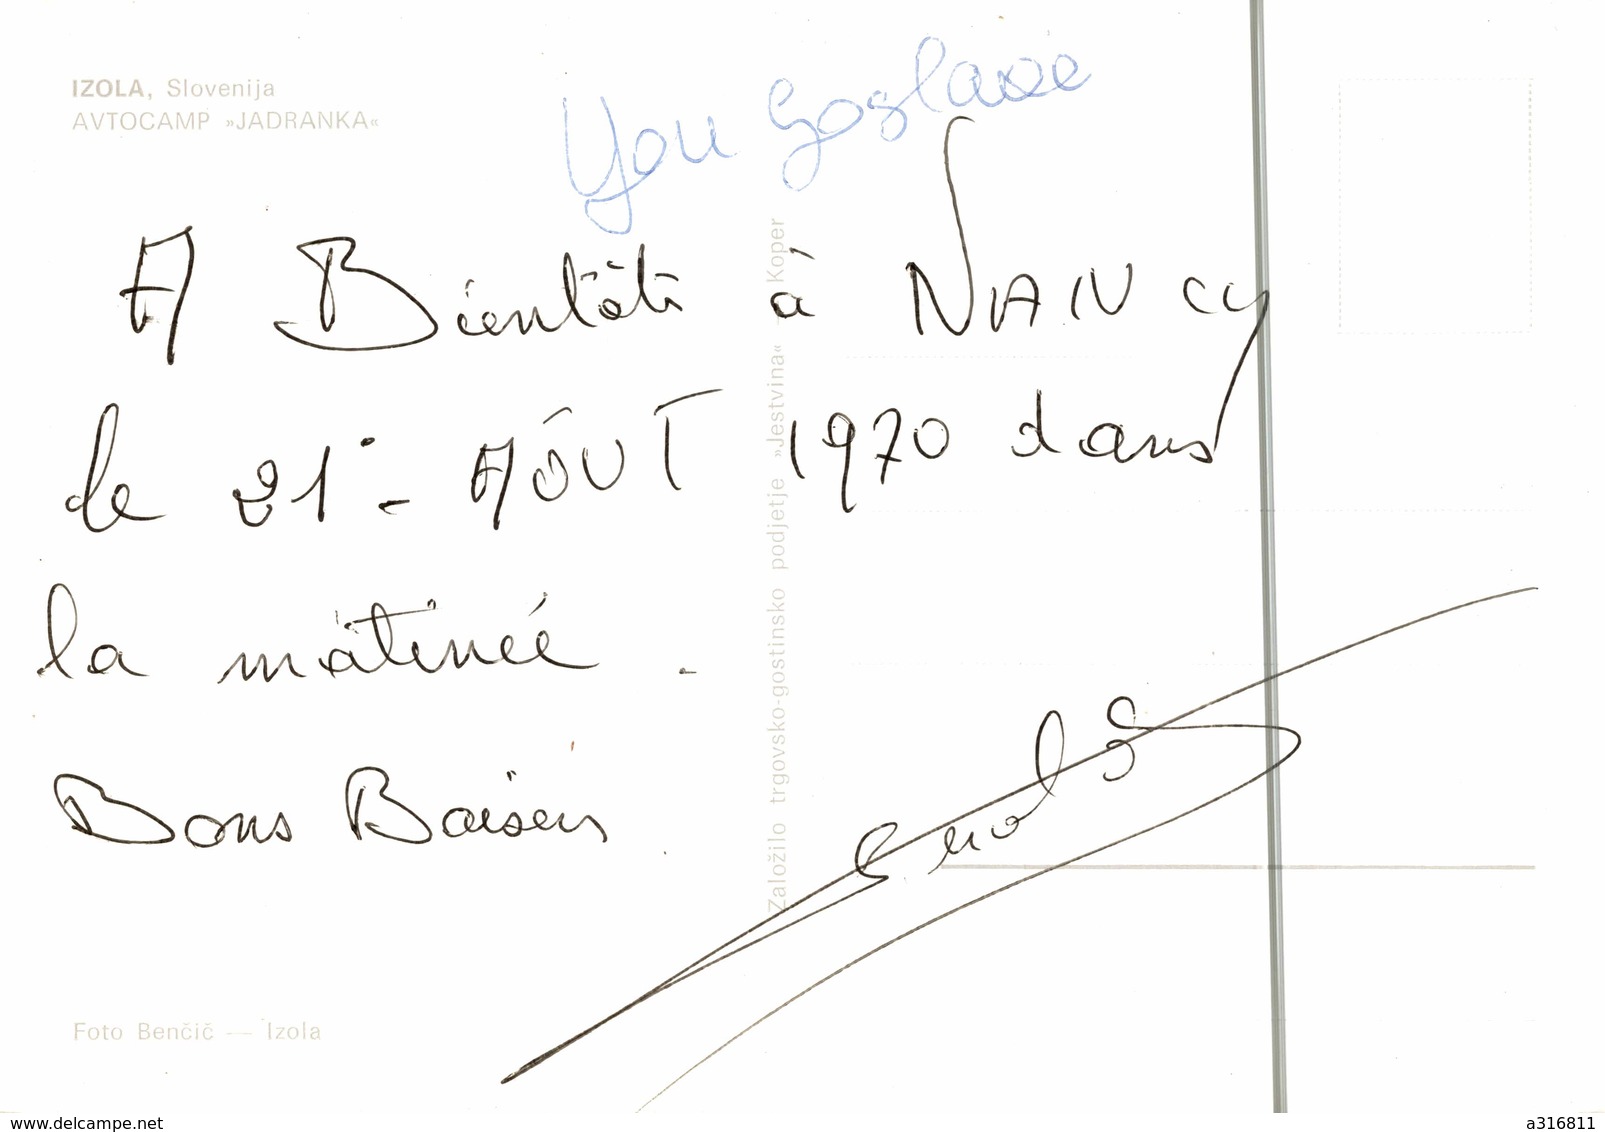 IZOLA, Slovenija
AVTOCAMP »JADRANKA«
You Goslave
A Bientôt à NANCY
le 21 - AÔUT 1970 dans
la matineé .
Bons Baisers
Založilo trgovsko-gostinsko podjetje »Jestvina« Koper
Foto Benčič — Izola
www.delcampe.net
a316811